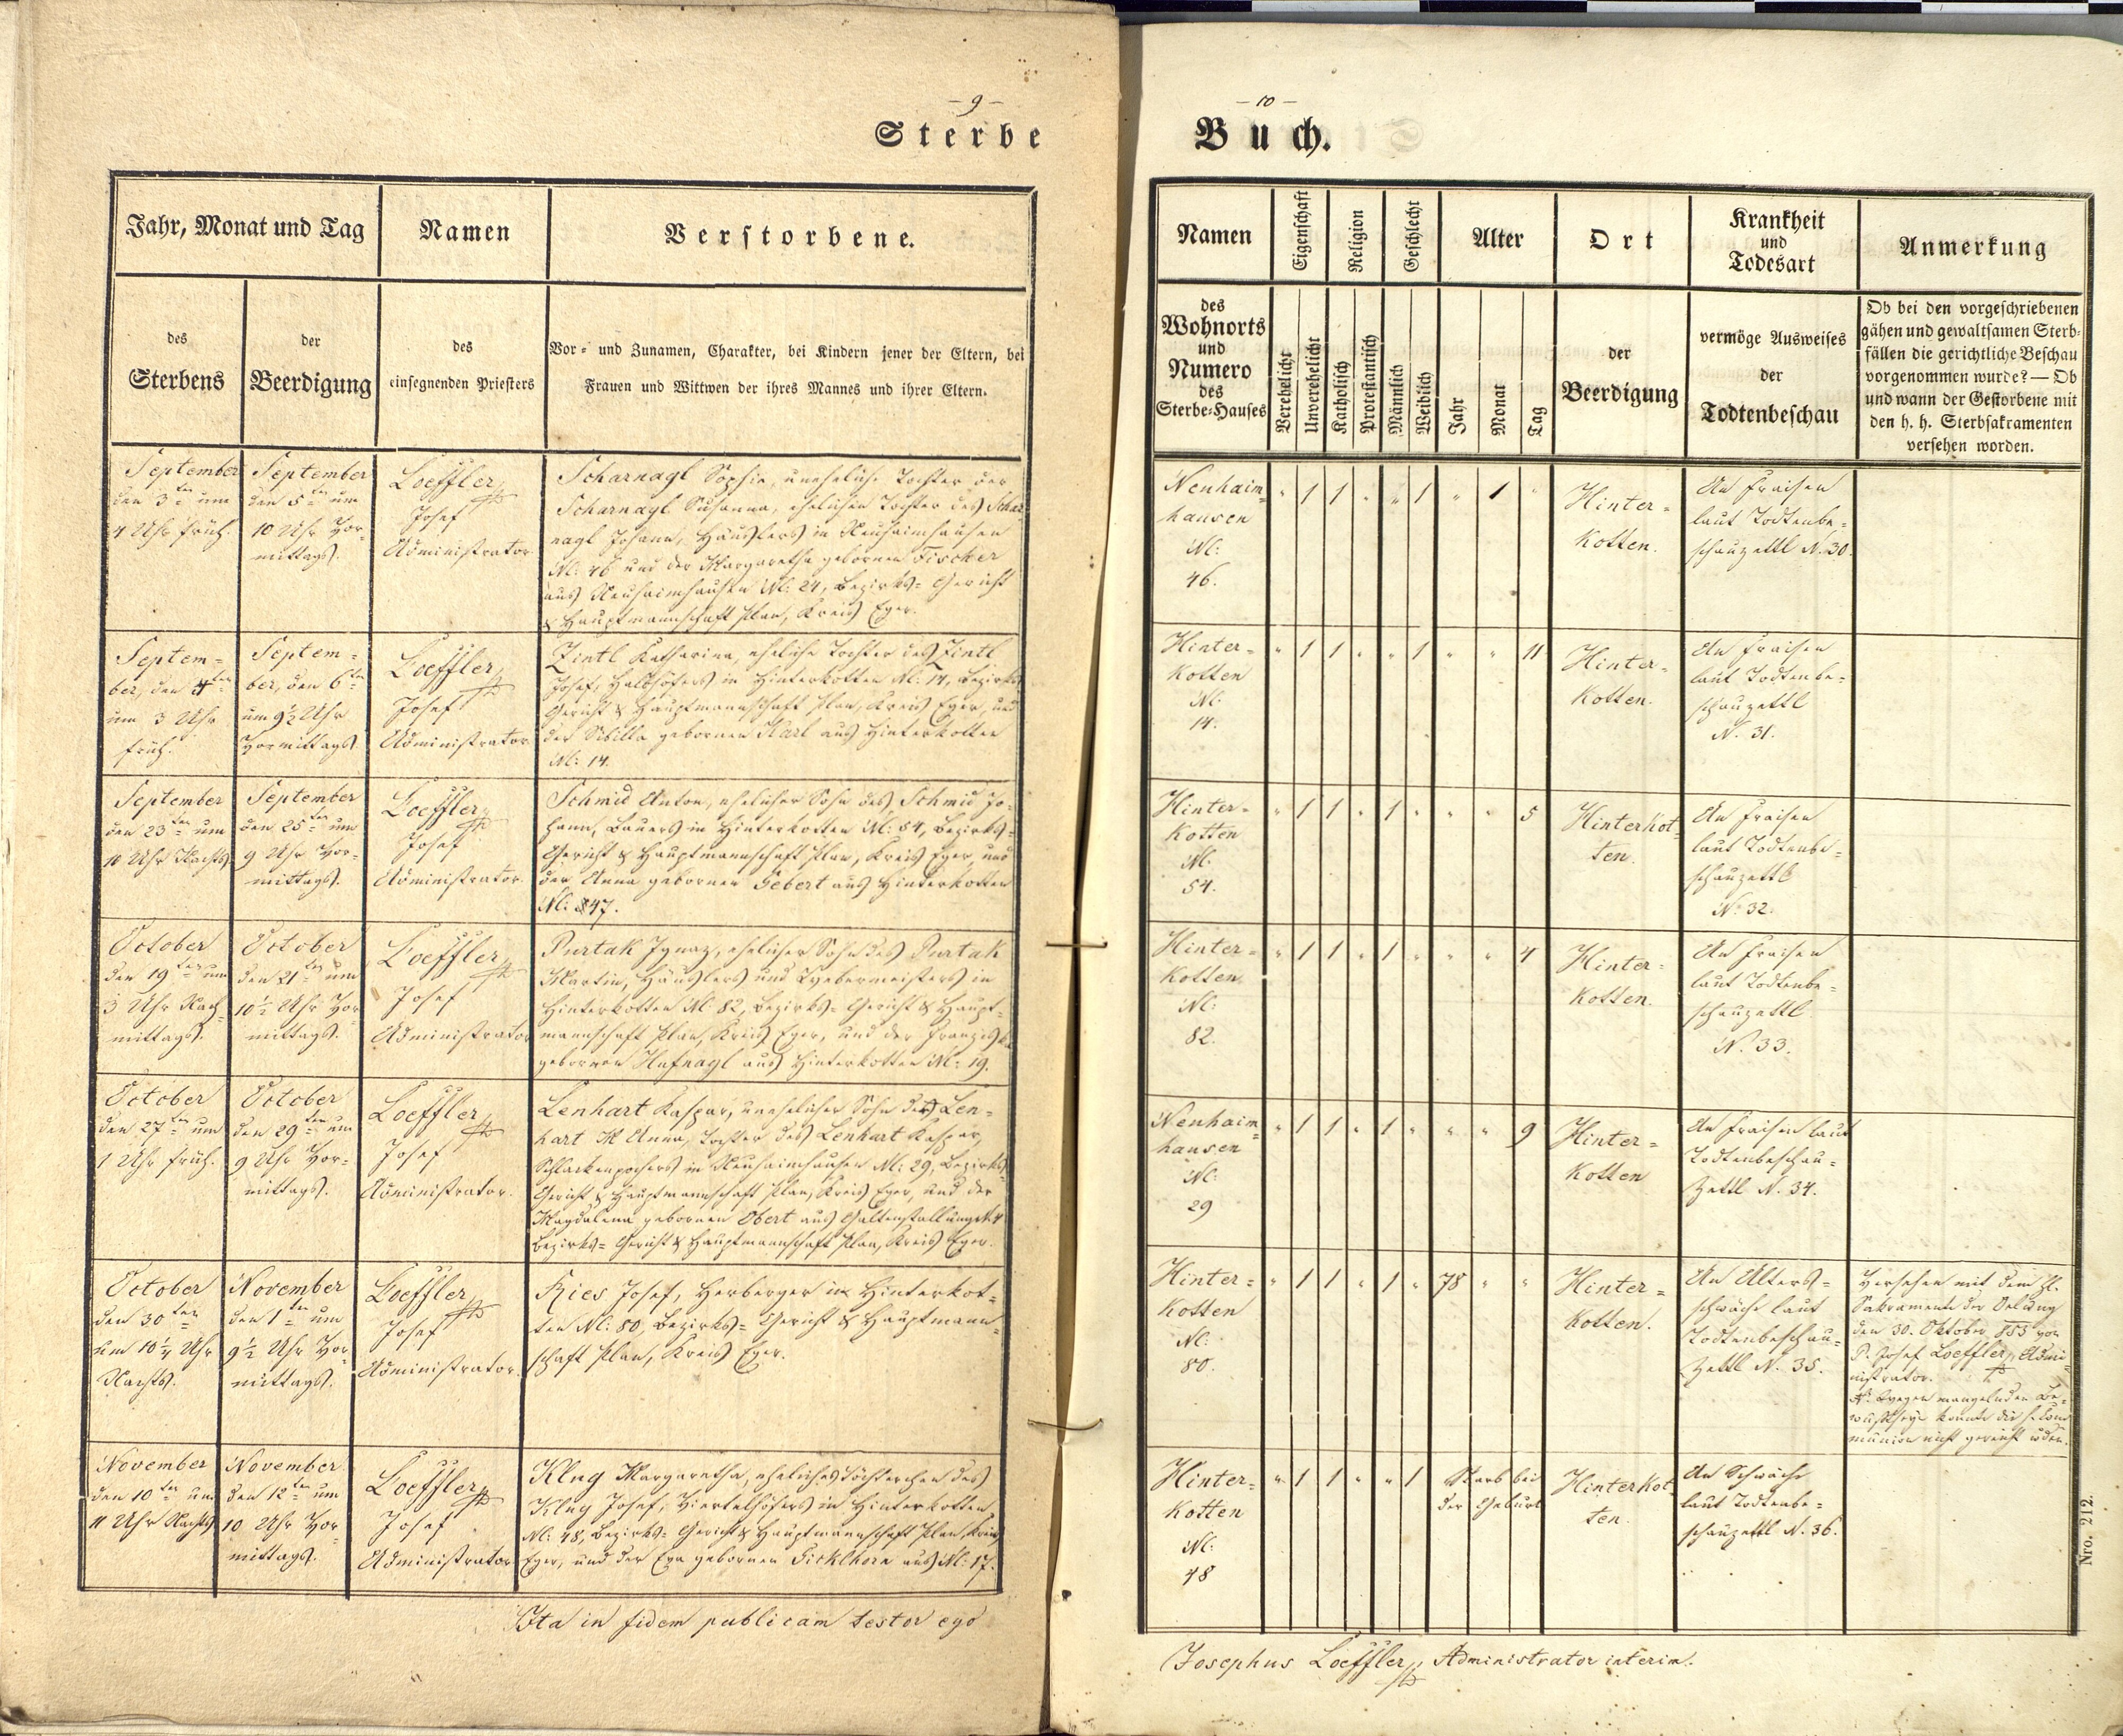 - 9 -
Sterbe
Jahr, Monat und Tag
Namen
Verstorbene.
des
Sterbens
der
Beerdigung
des
einsegnenden Priesters
Vor- und Zunamen, Charakter, bei Kindern jener der Eltern, bei
Frauen und Wittwen der ihres Mannes und ihrer Eltern.
September
den 3ten um
4 Uhr früh.
September
den 5ten um
10 Uhr Vor-
mittags.
Loeffler
Josef
Administrator
Scharnagl Sophie, uneheliche Tochter der
Scharnagl Susanna, ehelichen Tochter des Schar
nagl Johann, Häuslers in Neuhaimhausen
N: 46 und der Margaretha gebornen Fischer
aus Neuhaimhausen N: 24, Bezirks- Gericht
& Hauptmannschaft Plan, Kreis Eger.
Septem-
ber, den 4ten
um 3 Uhr
früh.
Septem-
ber, den 6ten
um 9½ Uhr
Vormittags
Loeffler
Josef
Administrator
Zintl Katharina, eheliche Tochter des Zintl
Josef, Halbhöfers in Hinterkotten N: 14, Bezirks
Gericht & Hauptmannschaft Plan, Kreis Eger, und
der Sibilla gebornen Karl aus Hinterkotten
N: 14.
September
den 23ten um
10 Uhr Nachts
September
den 25ten um
9 Uhr Vor-
mittags.
Loeffler
Josef
Administrator
Schmid Anton, ehelicher Sohn des Schmid Jo-
hann, Bauers in Hinterkotten N: 54, Bezirks-
Gericht & Hauptmannschaft Plan, Kreis Eger, und
der Anna gebornen Gebert aus Hinterkotten
N: 47.
October
den 19ten um
3 Uhr Nach-
mittags.
October
den 21ten um
10½ Uhr Vor
mittags.
Loeffler
Josef
Administrator
Purtak Ignaz, ehelicher Sohn des Purtak
Martin, Häuslers und Webermeisters in
Hinterkotten N: 82, Bezirks- Gericht & Haupt-
mannschaft Plan, Kreis Eger, und der Franziska
gebornen Hufnagl aus Hinterkotten N: 19.
October
den 27ten um
1 Uhr früh.
October
den 29ten um
9 Uhr Vor-
mittags.
Loeffler
Josef
Administrator.
Lenhart Kaspar, unehelicher Sohn der Len-
hart M Anna, Tochter des Lenhart Kaspar,
Schlackenpochers in Neuhaimhausen N: 29, Bezirks
Gericht & Hauptmannschaft Plan, Kreis Eger, und der
Magdalena gebornen Obert aus
Bezirks- Gericht & Hauptmannschaft Plan, Kreis Eger.
October
den 30ten
um 10¼ Uhr
Nachts.
November
den 1ten um
9½ Uhr Vor
mittags.
Loeffler
Josef
Administrator.
Kies Josef, Herberger in Hinterkot-
ten N: 80, Bezirks- Gericht & Hauptmann-
schaft Plan, Kreis Eger.
November
den 10ten um
11 Uhr Nachts
November
den 12ten um
10 Uhr Vor
mittags.
Loeffler
Josef
Administrator
Klug Margaretha, eheliches Töchterchen des
Klug Josef, Viertelhöfers in Hinterkotten
N: 48, Bezirks- Gericht & Hauptmannschaft Plan, Kreis
Eger, und der Eva gebornen Gicklhorn aus N: 17.
Ita in fidem publicam testor ego
- 10 -
Buch.
Namen
Eigenschaft
Religion
Geschlecht
Alter
Ort
Krankheit
und
Todesart
Anmerkung
des
Wohnorts
und
Numero
des
Sterbe-Hauses
Verehelicht
Unverehelicht
Katholisch
Protestantisch
Männlich
Weiblich
Jahr
Monat
Tag
der
Beerdigung
vermöge Ausweises
der
Todtenbeschau
Ob bei den vorgeschriebenen
gähen und gewaltsamen Sterb-
fällen die gerichtliche Beschau
vorgenommen wurde? — Ob
und wann der Gestorbene mit
den h. h. Sterbsakramenten
versehen worden.
Neuhaim-
hausen
N:
46.
" 1 1 " " 1 " 1 "
Hinter-
kotten.
An Fraisen
laut Todtenbe-
schauzettl N. 30.
Hinter-
kotten
N:
14.
" 1 1 " " 1 " " 11
Hinter-
kotten.
An Fraisen
laut Todtenbe-
schauzettl
N. 31.
Hinter-
kotten
N:
54.
" 1 1 " 1 " " " 5
Hinterkot-
ten.
An Fraisen
laut Todtenbe-
schauzettl
N. 32.
Hinter-
kotten
N:
82.
" 1 1 " 1 " " " 4
Hinter-
kotten.
An Fraisen
laut Todtenbe-
schauzettl
N. 33.
Neuhaim-
hausen
N:
29
" 1 1 " 1 " " " 9
Hinter-
kotten
An Fraisen laut
Todtenbeschau-
Zettl N. 34.
Hinter-
kotten
N:
80.
" 1 1 " 1 " 78 " "
Hinter-
kotten.
An Alters-
schwäche laut
Todtenbeschau-
Zettl N. 35.
Versehen mit dem hl.
Sakramente der Oelung
den 30. Oktober 855 von
P. Josef Loeffler, Admi-
nistrator.
Wegen mangelnden Be-
wußtseyn konnte die h. Kom-
munion nicht gereicht wden.
Hinter-
kotten
N:
48
" 1 1 " " 1
Starb bei
der Geburt
Hinterkot
ten.
An Schwäche
laut Todtenbe-
schauzettl N. 36.
Josephus Loeffler, Administrator interim.
Nro. 212.